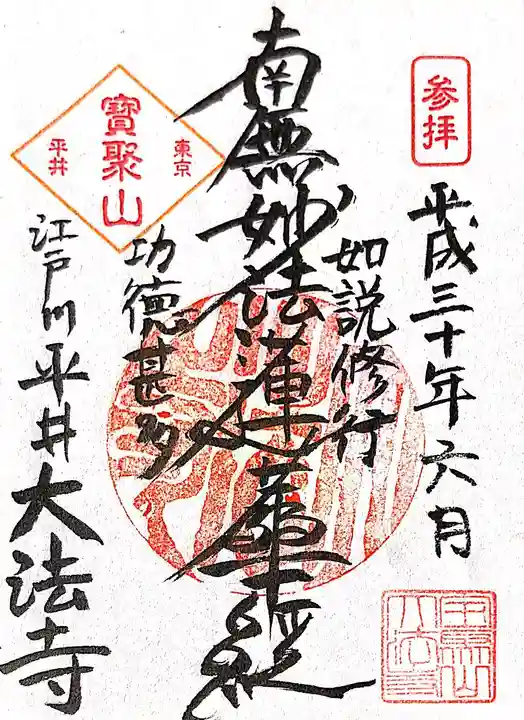 参拝
平成三十年六月
如説修行
南無妙法蓮華経
功徳甚多
東京
寶聚山
平井
江戸川平井大法寺